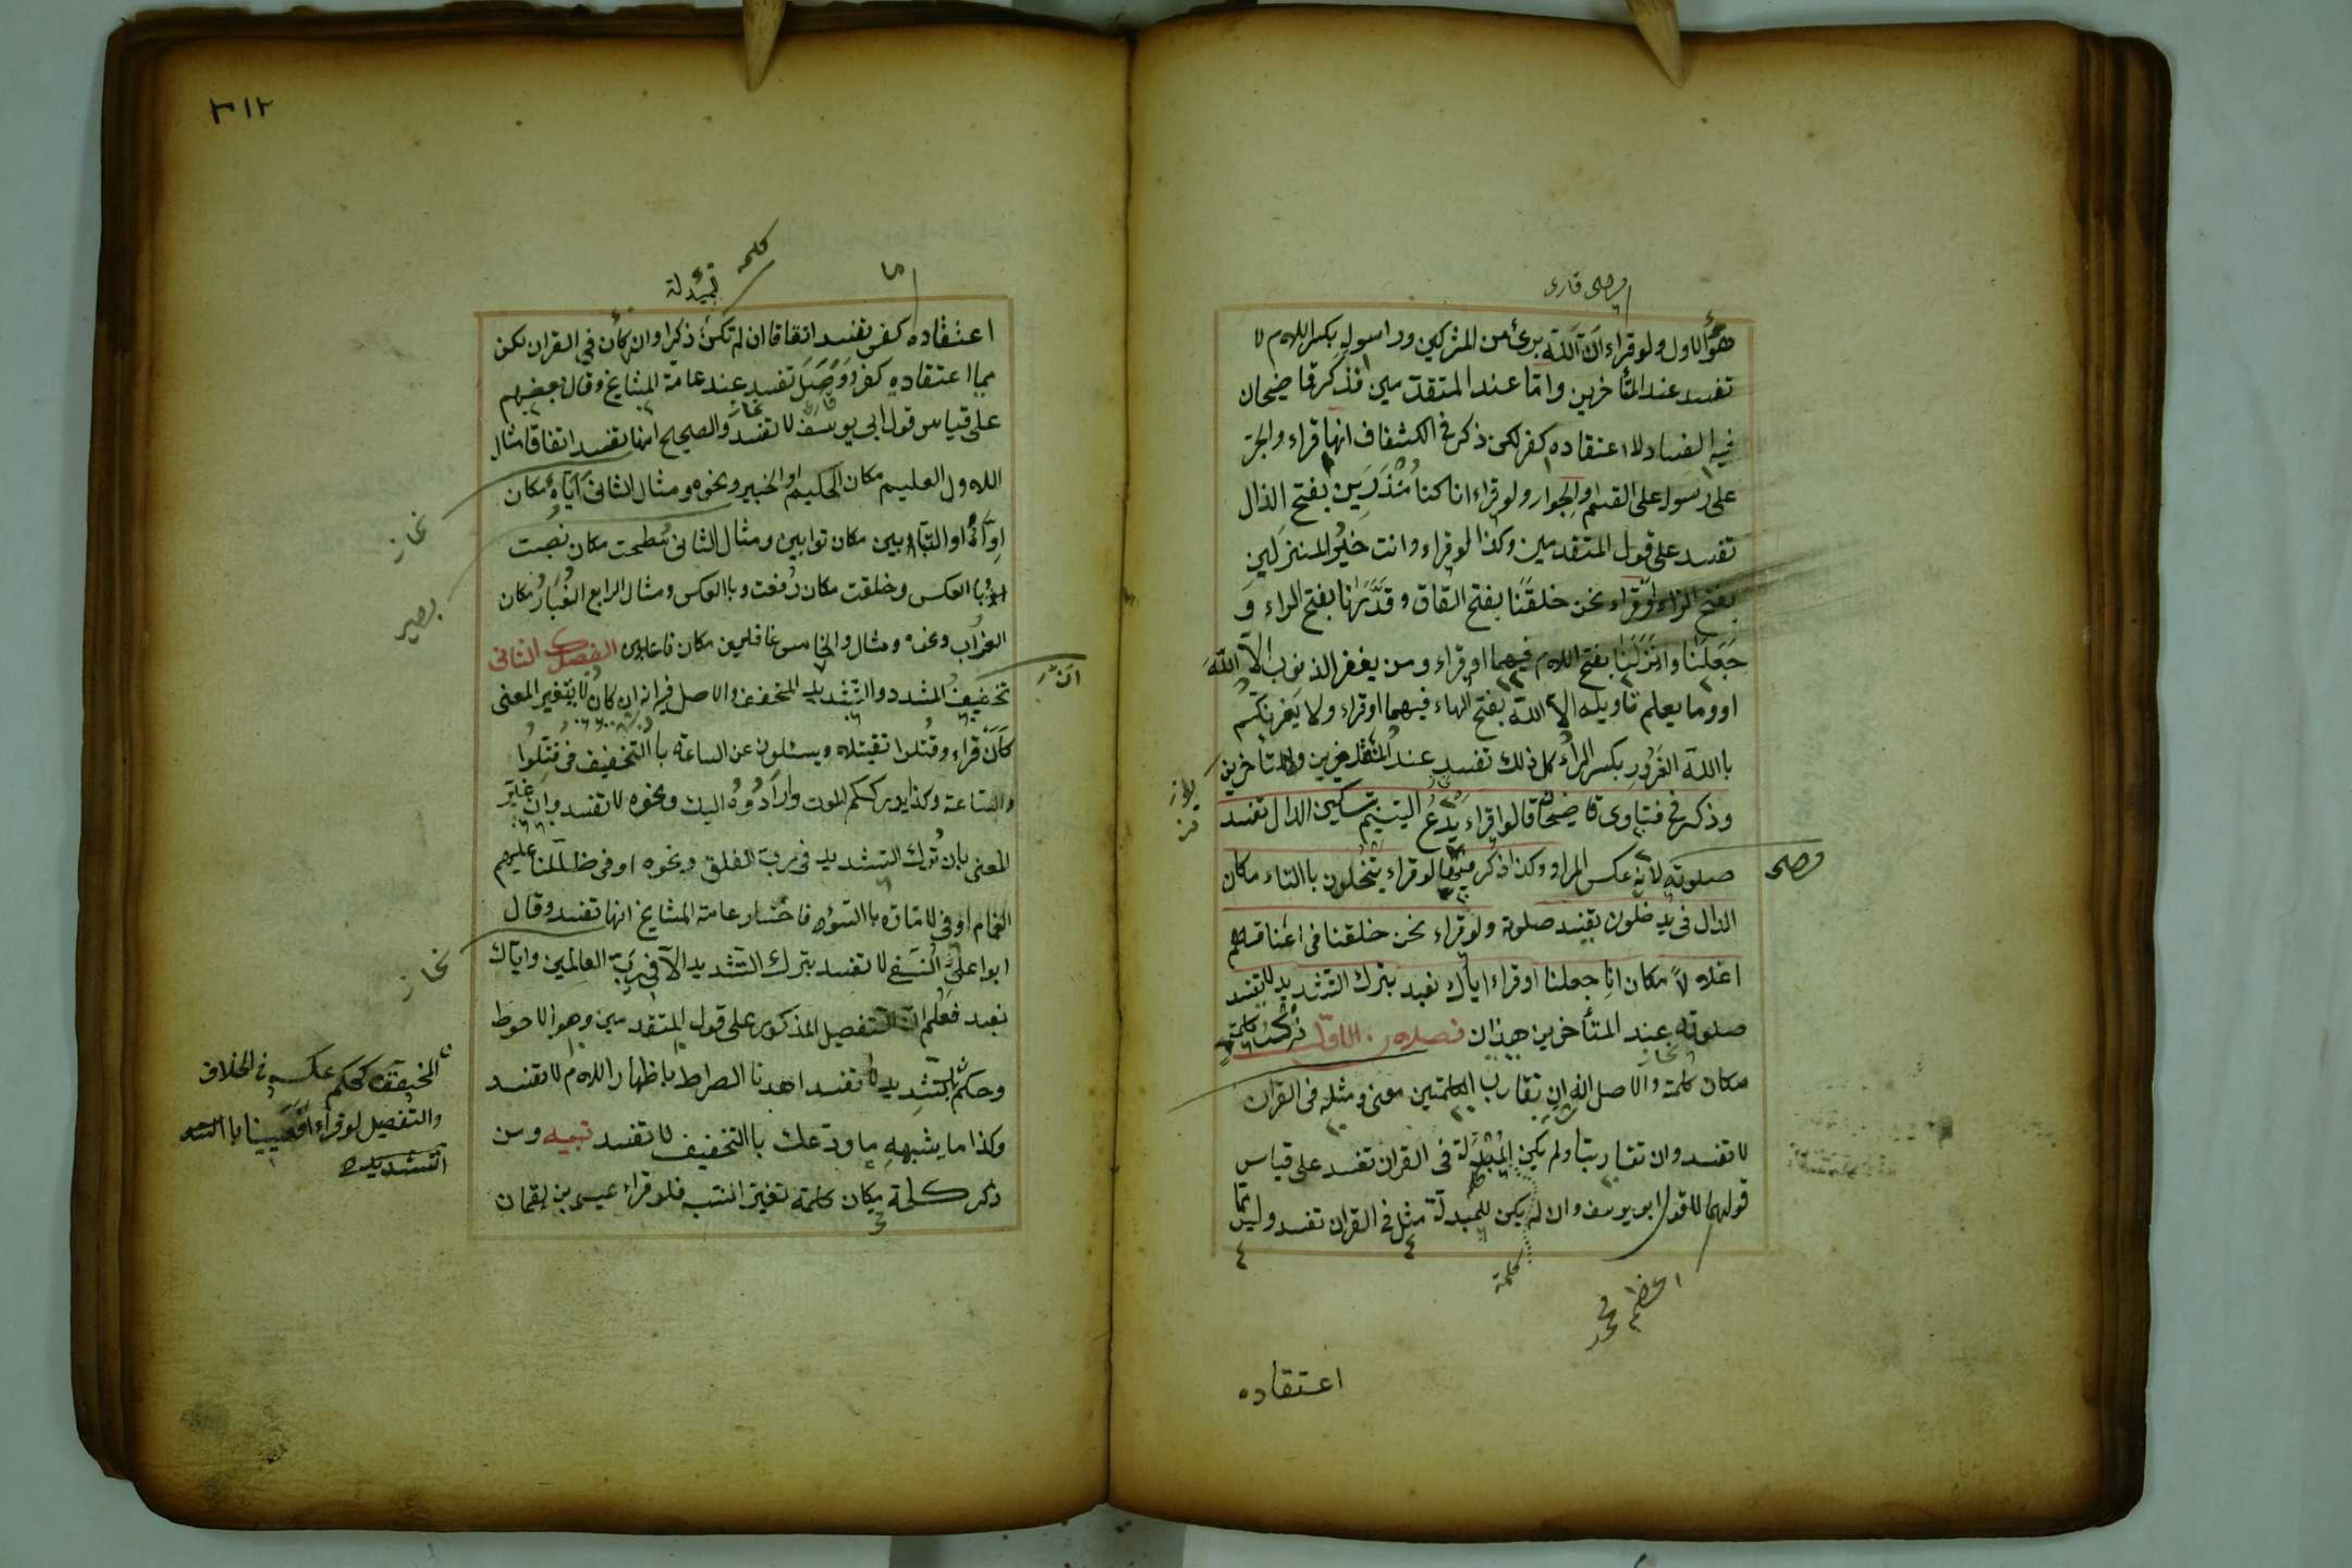 هو الاول ولو قراء ان الله برئ من المشركين ورسوله بكسر اللام لا
تفسد عند المتأخرين واما عند المتقدمين فذكر قاضيخان
فيه الفساد لا اعتقاده كفر لكن ذكر في الكشاف انها قراء والجر
على رسوله على القسم او الجوار ولو قراء انا كنا منذرين بفتح الذال
تفسد على قول المتقدمين وكذا لو قراء وانت خير المنزلين
بفتح الزاء او قراء نحن خلقنا بفتح القاف وقدرنا بفتح الراء و
جعلنا وانزلنا بفتح اللام فيهما او قراء ومن يغفر الذنوب الا الله
او وما يعلم تاويله الا الله بفتح الهاء فيهما او قراء ولا يغرنكم
باالله الغرور بكسر الراء كل ذلك تفسد عند المتقدمين والمتأخرين
وذكر في فتاوى قاضيخان قالوا قراء يدع اليتيم بتسكين الدال تفسد
صلوته لانه عكس المراد وكذا ذكر فيها لو قراء يتخلون باالتاء مكان
الدال في يدخلون تفسد صلوته ولو قراء نحن خلقنا في اعناقهم
اغلالا مكان انا جعلنا او قراء اياك نعبد بترك التشديد لا تفسد
صلوته عند المتأخرين هذان فصلان الاول ذكر كلمة
مكان كلمة والاصل انه ان تقارب الكلمتين معنى ومثله في القران
لا تفسد وان تقاربتا ولم يكن المبدلة في القران تفسد على قياس
قولهما لا قول ابو يوسف وان لم يكن للمبدلة مثل في القران تفسد وليس مما
كلمة
اعتقاده
٣١٢
كلمه
اعتقاده كفر تفسد اتفاقا ان لم تكن ذكرا وان كان في القران لكن
مما اعتقاده كفر تفسد عند عامة المشايخ وقال بعضهم
على قياس قول ابي يوسف لا تفسد والصحيح انها تفسد اتفاقا مثال
الاول العليم مكان الحكيم او الخبير ونحوه ومثال الثاني اياه مكان
اواه او التيابين مكان توابين ومثال الثاني سطحت مكان نصبت
او باالعكس وخلقت مكان رفعت وباالعكس ومثال الرابع الغبار مكان
الغراب ونحوه ومثال والخامس غافلين مكان فاعلين الفصل الثاني
تخفيف المشدد والتشديد المخفف والاصل فيه انه ان كان لا يتغير المعنى
كان قراء وقتلوا تقتيلا ويسئلون عن الساعة باالتخفيف في قتلوا
والساعة وكذا يدرككم الموت وارادوه اليك ونحوه لا تفسد وان غير
المعنى بان ترك التشديد في برب الفلق ونحوه او في ظللنا عليهم
الغمام او في لامارة باالسوء فاختار عامة المشايخ انها تفسد وقال
ابو علي النسفي لا تفسد بترك التشديد الا في رب العالمين واياك
نعبد فعلم ان التفصيل المذكور على قول المتقدمين وهو الاحوط
وحكم تشديد لا تفسد اهدنا الصراط باظهار اللام لا تفسد
وكذا ما يشبهه ما ودعك باالتخفيف لا تفسد تنبيه ومن
ذكر كلمة مكان كلمة تغير النسب فلو قراء عيسى بن لقمان
المخفف كحكم عكسه في الخلاف
والتفصيل لو قراء افعيينا باالتشديد